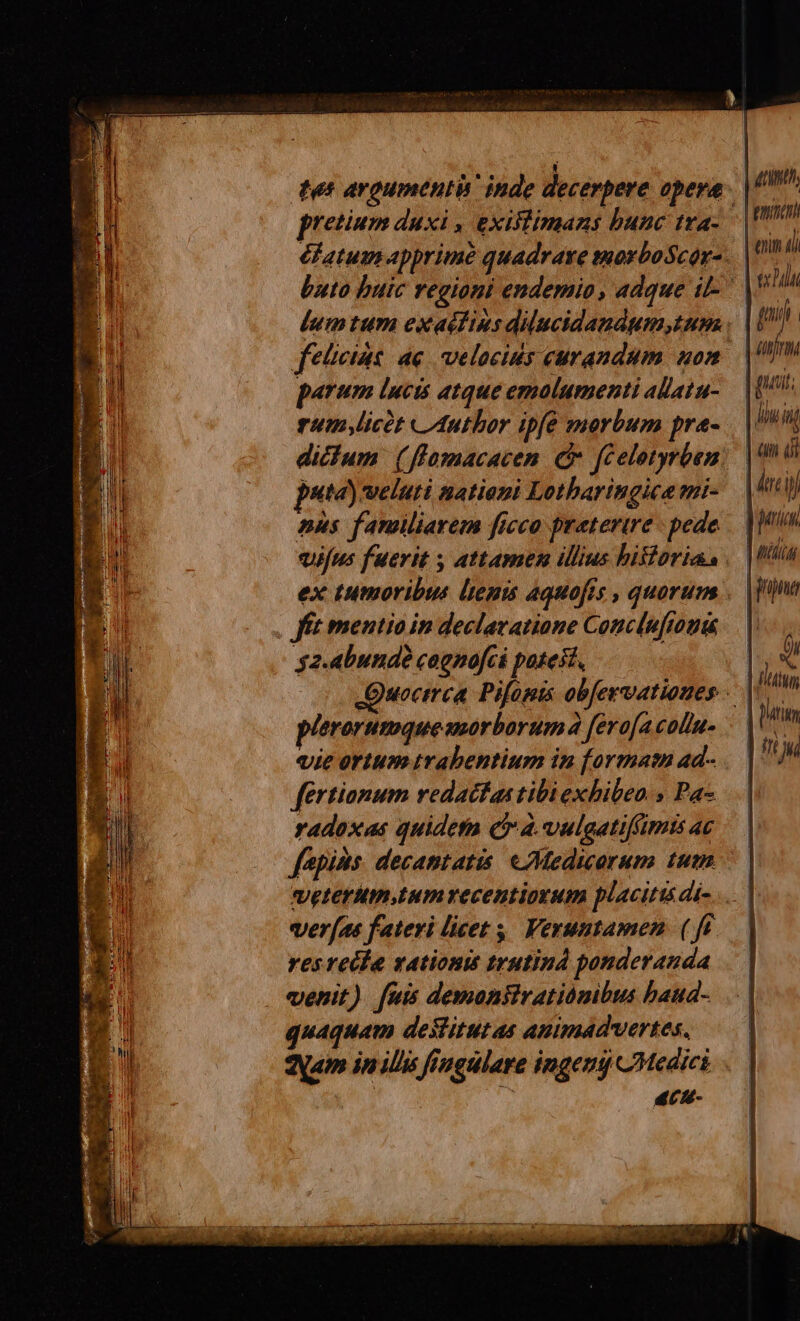 tas argumentis inde decerpere operæ
pretium duxi, existimans hunc tra-
ctatum apprimè quadrare morbo Scor-
buto huic regioni endemio, adque il-
lum tum exactiùs dilucidandum, tum
feliciùs ac velociùs curandum non
parum lucis atque emolumenti allatu-
rum, licèt Author ipse morbum præ-
dictum (stomacacen & scelotyrben
puta) veluti nationi Lotharingicæ mi-
nùs familiarem sicco præterire pede
visus fuerit; attamen illius historias
ex tumoribus lienis aquosis, quorum
fit mentio in declaratione Conclusionis
52. abundè cognosci potest.
Quocirca Pisonis observationes
plerorumque morborum à serosa collu-
vie ortum trahentium in formam ad-
sertionum redactas tibi exhibeo, Pa-
radoxas quidem & à vulgatissimis ac
sæpiùs decantatis Medicorum tum
veterum, tum recentiorum placitis di-
versas fateri licet; Veruntamen (si
res rectæ rationis trutinâ ponderanda
venit) suis demonstratiònibus haud-
quaquam destitutas animadvertes.
Nam in illis singulare ingenij Medici
acu-